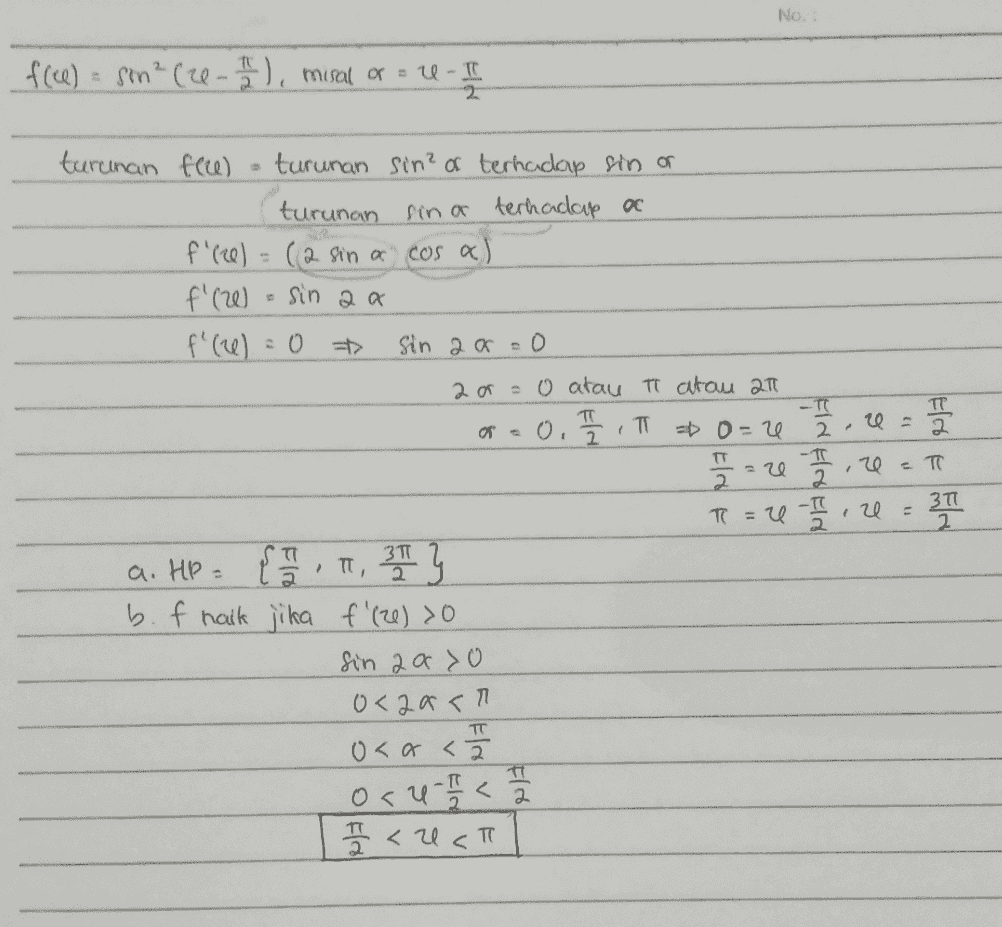 No. :
f(x) = sin² (x - π/2), misal α = x - π/2
turunan f(x) = turunan sin² α terhadap sin α
turunan sin α terhadap α
f'(x) = (2 sin α cos α)
f'(x) = sin 2 α
f'(x) = 0 ⇒ sin 2 α = 0
2 α = 0 atau π atau 2π
α = 0, π/2, π ⇒ 0 = x - π/2, x = π/2
π/2 = x - π/2, x = π
π = x - π/2, x = 3π/2
a. HP = {π/2, π, 3π/2}
b. f naik jika f'(x) > 0
sin 2 α > 0
0 < 2 α < π
0 < α < π/2
0 < x - π/2 < π/2
π/2 < x < π